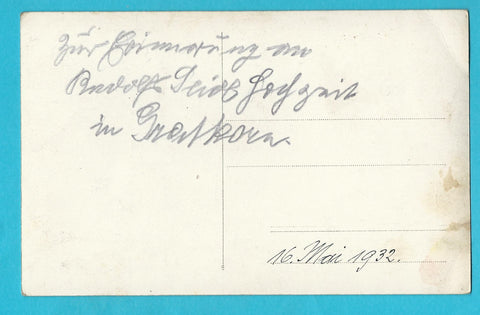 Zur Erinnerung an
Rudolf Seidl Hochzeit
in Gratkorn.
16. Mai 1932.